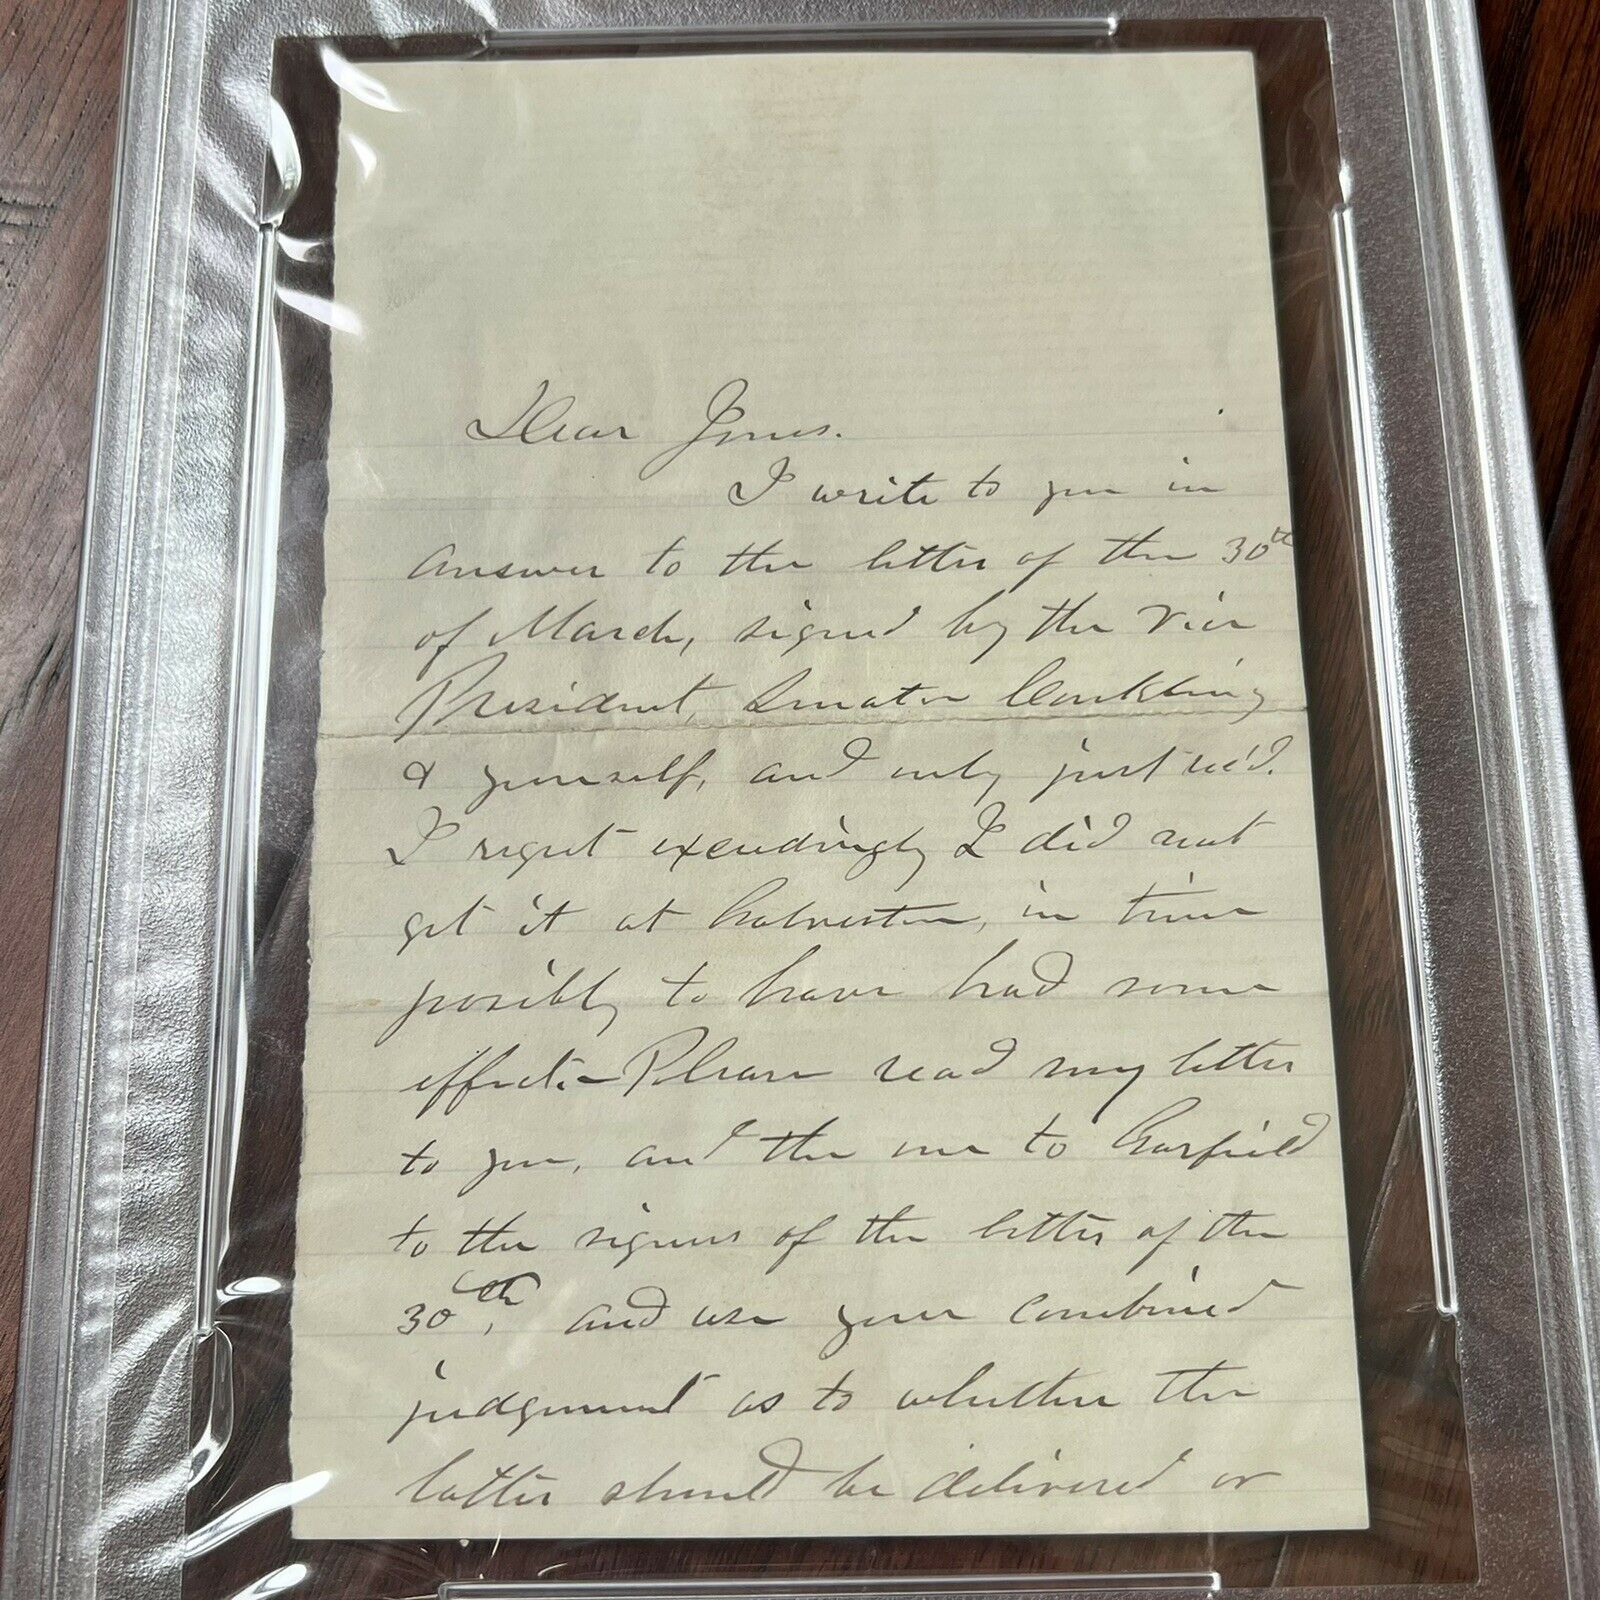 Dear Jones.
I write to you in
answer to the letter of the 30th
of March, signed by the Vice
President, Senator Conkling
& yourself, and only just rec'd.
I regret exceedingly I did not
get it at Galveston, in time
possibly to have had some
effect.— Please read my letter
to you, and the one to Garfield
to the signers of the letter of the
30th, and use your combined
judgement as to whether the
latter should be delivered or